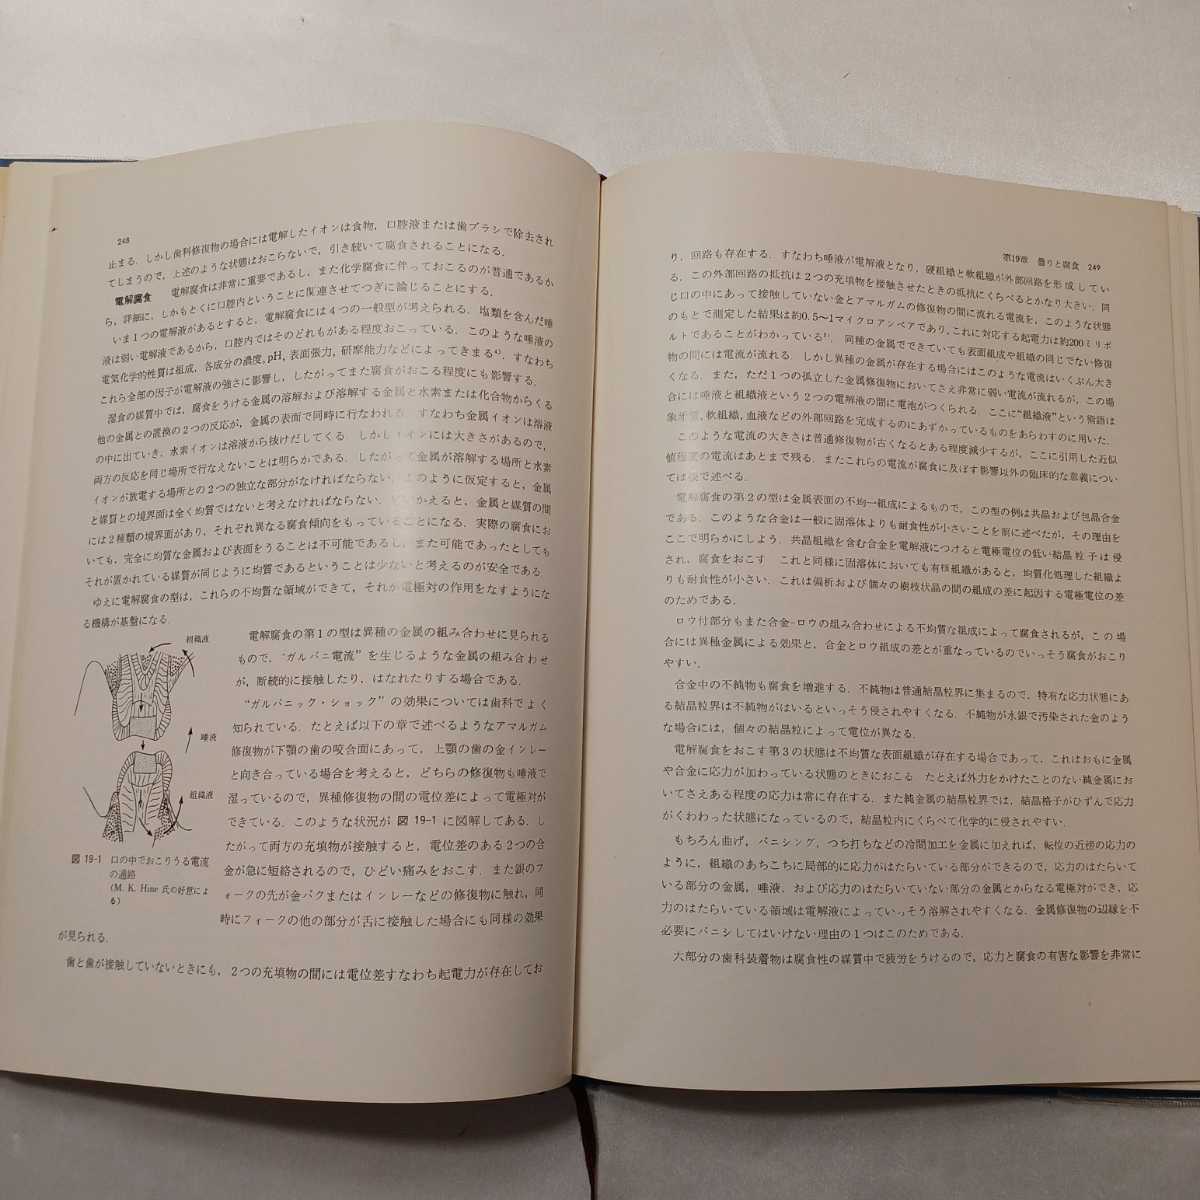 248
止まる．しかし歯科修復物の場合には電解したイオンは食物，口腔液または歯ブラシで除去され
てしまうので，上述のような状態はおこらないで，引き続いて腐食されることになる．
電解腐食　電解腐食は非常に重要であるし，また化学腐食に伴っておこるのが普通であるか
ら，詳細に，しかもとくに口腔内ということに関連させてつぎに論じることにする．
いま１つの電解液があるとすると，電解腐食には４つの一般型が考えられる．塩類を含んだ唾
液は弱い電解液であるから，口腔内ではそのどれもがある程度おこっている．このような唾液の
電気化学的性質は組成，各成分の濃度，pH，表面張力，研摩能力などによってきまる⁴⁾．すなわち
これら全部の因子が電解液の強さに影響し，したがってまた腐食がおこる程度にも影響する．
湿食の媒質中では，腐食をうける金属の溶解および溶解する金属と水素または化合物からくる
他の金属との置換の２つの反応が，金属の表面で同時に行なわれる．すなわち金属イオンは溶液
の中に出ていき，水素イオンは溶液から抜けだしてくる．しかしイオンには大きさがあるので，
両方の反応を同じ場所で行なえないことは明らかである．したがって金属が溶解する場所と水素
イオンが放電する場所との２つの独立な部分がなければならない．このように仮定すると，金属
と媒質との境界面は全く均質ではないと考えなければならない．いいかえると，金属と媒質の間
には２種類の境界面があり，それぞれ異なる腐食傾向をもっていることになる．実際の腐食にお
いても，完全に均質な金属および表面をうることは不可能であるし，また可能であったとしても
それが置かれている媒質が同じように均質であるということは少ないと考えるのが安全である．
ゆえに電解腐食の型は，これらの不均質な領域ができて，それが電極対の作用をなすようにな
る機構が基盤になる．
組織液
唾液
組織液
図 19-1　口の中でおこりうる電流
の通路
(M. K. Hine 氏の好意によ
る)
電解腐食の第１の型は異種の金属の組み合わせに見られる
もので，“ガルバニ電流”を生じるような金属の組み合わせ
が，断続的に接触したり，はなれたりする場合である．
“ガルバニック・ショック”の効果については歯科でよく
知られている．たとえば以下の章で述べるようなアマルガム
修復物が下顎の歯の咬合面にあって，上顎の歯の金インレー
と向き合っている場合を考えると，どちらの修復物も唾液で
湿っているので，異種修復物の間の電位差によって電極対が
できている．このような状況が 図 19-1 に図解してある．し
たがって両方の充填物が接触すると，電位差のある２つの合
金が急に短絡されるので，ひどい痛みをおこす．また銀のフ
ォークの先が金バクまたはインレーなどの修復物に触れ，同
時にフォークの他の部分が舌に接触した場合にも同様の効果
が見られる．
歯と歯が接触していないときにも，２つの充填物の間には電位差すなわち起電力が存在してお
第19章　曇りと腐食　249
り，回路も存在する．すなわち唾液が電解液となり，硬組織と軟組織が外部回路を形成してい
る．この外部回路の抵抗は２つの充填物を接触させたときの抵抗にくらべるとかなり大きい．同
じ口の中にあって接触していない金とアマルガムの修復物の間に流れる電流を，このような状態
のもとで測定した結果は約0.5〜1マイクロアンペアであり，これに対応する起電力は約200ミリボ
ルトであることがわかっている⁵⁾．同種のものでできていても表面組成や組織の同じでない修復
物の間には電流が流れる．しかし異種の金属が存在する場合にはこのような電流はいくぶん大き
くなる．また，ただ１つの孤立した金属修復物においてさえ非常に弱い電流が流れるが，この場
合には唾液と組織液という２つの電解液の間に電池がつくられる．ここに“組織液”という術語は
象牙質，軟組織，血液などの外部回路を完成するのにあずかっているものをあらわすのに用いた．
このような電流の大きさは普通修復物が古くなるとある程度減少するが，ここに引用した近似
値程度の電流はあとまで残る．またこれらの電流が腐食に及ぼす影響以外の臨床的な意義につい
ては後で述べる．
電解腐食の第２の型は金属表面の不均一組成によるもので，この型の例は共晶および包晶合金
である．このような合金は一般に固溶体よりも耐食性が小さいことを前に述べたが，その理由を
ここで明らかにしよう．共晶組織を含む合金を電解液につけると電極電位の低い結晶粒子は侵
され，腐食をおこす．これと同様に固溶体においても有核組織があると，均質化処理した組織よ
りも耐食性が小さい．これは偏析および個々の樹枝状晶の間の組成の差に起因する電極電位の差
のためである．
ロウ付部分もまた合金-ロウの組み合わせによる不均質な組成によって腐食されるが，この場
合には異種金属による効果と，合金とロウ組成の差とが重なっているのでいっそう腐食がおこり
やすい．
合金中の不純物も腐食を増進する．不純物は普通結晶粒界に集まるので，特有な応力状態にあ
る結晶粒界は不純物がはいるといっそう侵されやすくなる．不純物が水銀で汚染された金のよう
な場合には，個々の結晶粒によって電位が異なる．
電解腐食をおこす第３の状態は不均質な表面組織が存在する場合であって，これはおもに金属
や合金に応力が加わっている状態のときにおこる．たとえば外力をかけたことのない純金属にお
いてさえある程度の応力は常に存在する．また純金属の結晶粒界では，結晶格子がひずんで応力
がくわわった状態になっているので，結晶粒内にくらべて化学的に侵されやすい．
もちろん曲げ，バニシング，つち打ちなどの冷間加工を金属に加えれば，転位の近傍の応力の
ように，組織のあちこちに局部的に応力がはたらいている部分ができるので，応力のはたらいて
いる部分の金属，唾液，および応力のはたらいていない部分の金属とからなる電極対ができ，応
力のはたらいている領域は電解液によっていっそう溶解されやすくなる．金属修復物の辺縁を不
必要にバニシしてはいけない理由の１つはこのためである．
大部分の歯科装着物は腐食性の媒質中で疲労をうけるので，応力と腐食の有害な影響を非常に